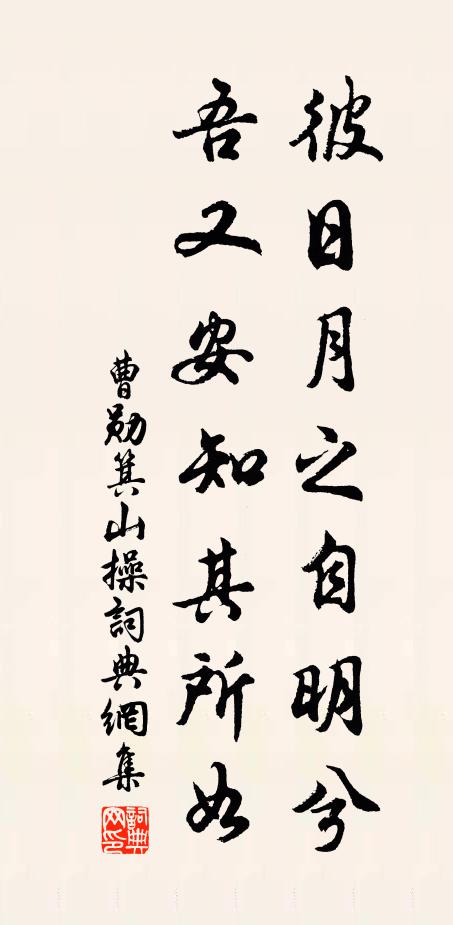 彼日月之自明兮
吾又安知其所如
曹勛箕山操詞典網集
詞典網印